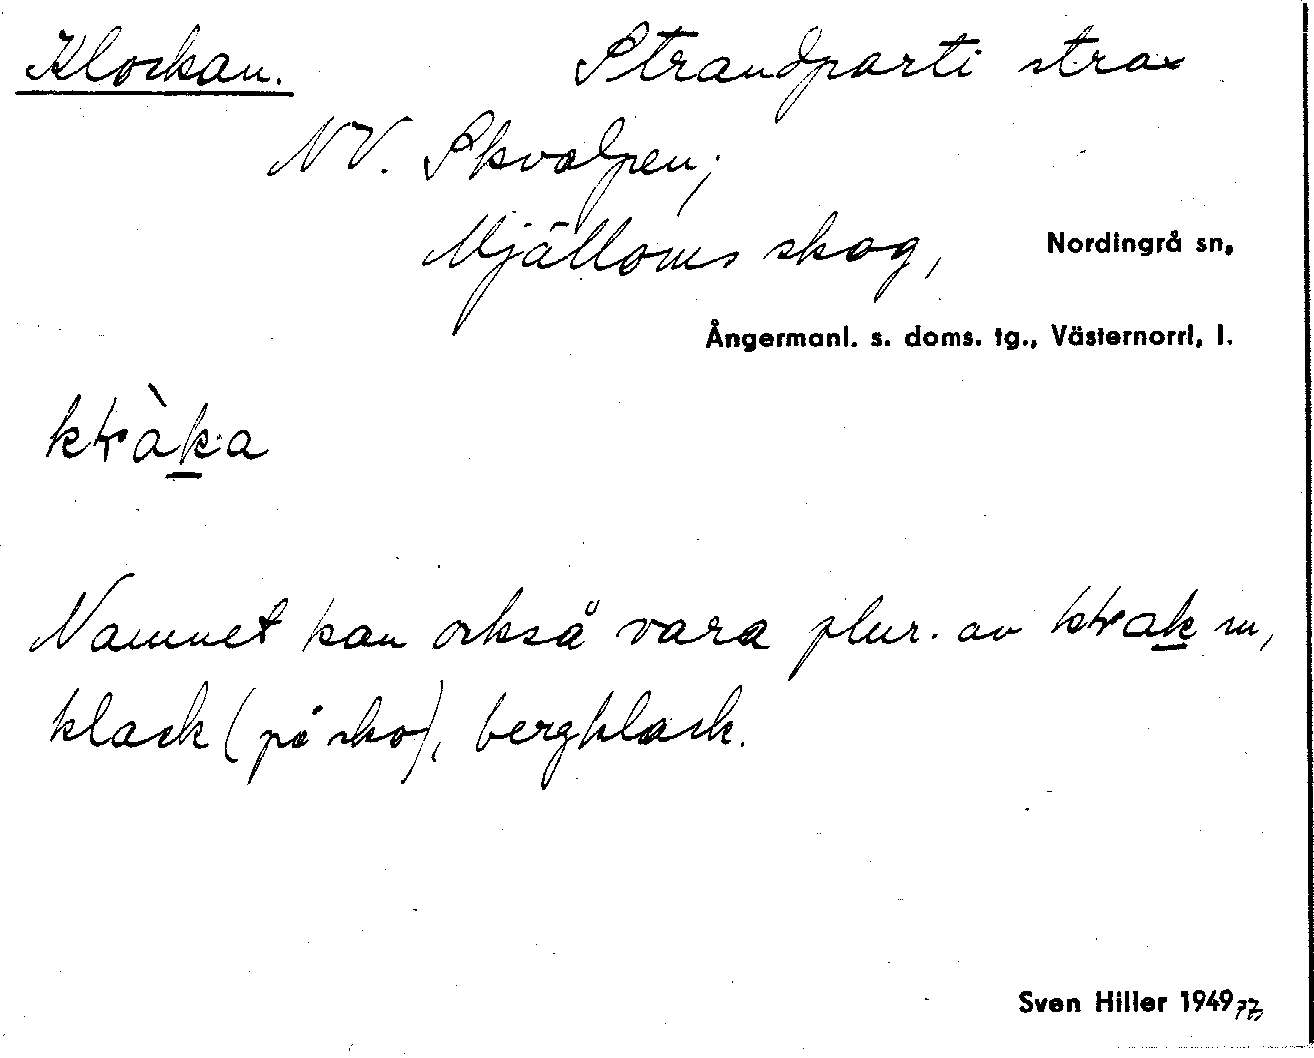 Klockan. Strandparti strax
NV. Skvalpen;
Mjälloms skog, Nordingrå sn,
Ångermanl. s. doms. tg., Västernorrl, l.
Namnet kan också vara plur. av m,
klack (på sko), bergklack.
Sven Hiller 1949